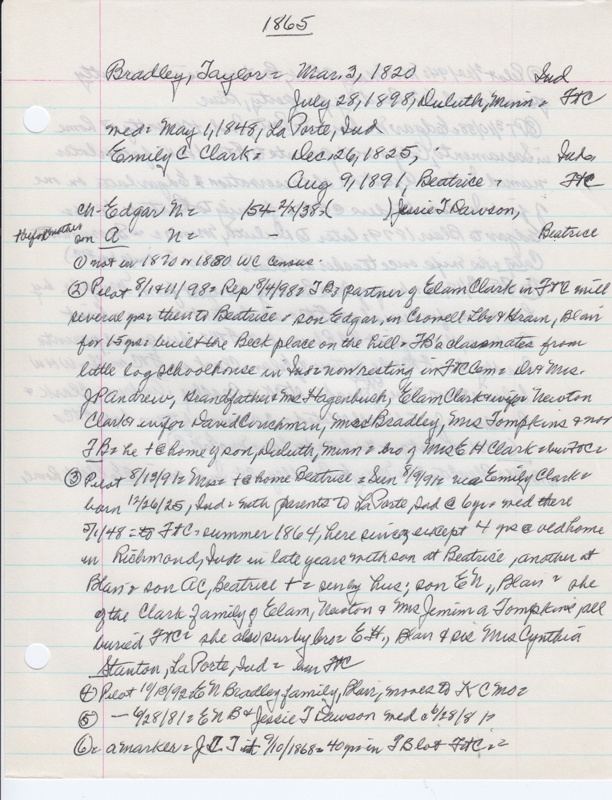 1865
Bradley, Taylor = Mar. 3, 1820 Ind
July 28, 1898, Duluth, Minn = FtC
med = May 1, 1848, LaPorte, Ind
Emily C Clark = Dec. 26, 1825, Ind =
Aug 9, 1891, Beatrice = FtC
ch - Edgar N = ) Jessie T Dawson,
son A N = - Beatrice
① not in 1870 or 1880 WC Census.
② Pilot 8/1 & 11/98 = Rep 18/4/98 = TB = partner of Elam Clark in FtC mill
several yrs = then to Beatrice = son Edgar, in Crowell Lbr & Grain, Blair
for 15 yrs = built the Beck place on the hill = TB & classmates from
little log schoolhouse in Ind = now resting in FtC Cem = Dr & Mrs.
JP Andrew, Grandfather & Ms Hagenbuch, Elam Clark & wife Newton
Clark & wife David Couchman, Mrs Bradley, Mrs Tompkins & now
TB = he + @ home of son, Duluth, Minn = bro of Mrs E H Clark = bur FtC =
③ Pilot 8/13/91 = Mrs = + @ home Beatrice = Sun 8/9/91 = nee Emily Clark =
born 12/26/25, Ind = with parents to LaPorte, Ind @ 6 yr = med there
5/1/48 = to FtC = summer 1864, here since, except 4 yrs @ old home
in Richmond, Ind = in late years with son at Beatrice, another at
Blair = son AC, Beatrice + = surby hus; son EN, Blair = she
of the Clark family of Elam, Newton & Mrs Jemima Tompkins, all
buried FtC = she also surby bro = E.H., Blair & sis Mrs Cynthia
Stanton, LaPorte, Ind = bur FtC
④ Pilot 10/13/92 = EN Bradley family, Blair, moves to KC Mo =
⑤ - 6/28/81 = E N B & Jessie T Dawson med 6/28/81
⑥ = a marker = 9/10/1868 = 40 yrs in TB lot FtC = =